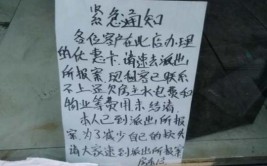 紧急通知
各位客户在此店办理
的优惠卡,请速去派出
所报案,现租客已联系
不上还欠房主水电费和
物业等费用未结清
本人已到派出所报
案,为了减少自己的损失
请大家速到派出所报案